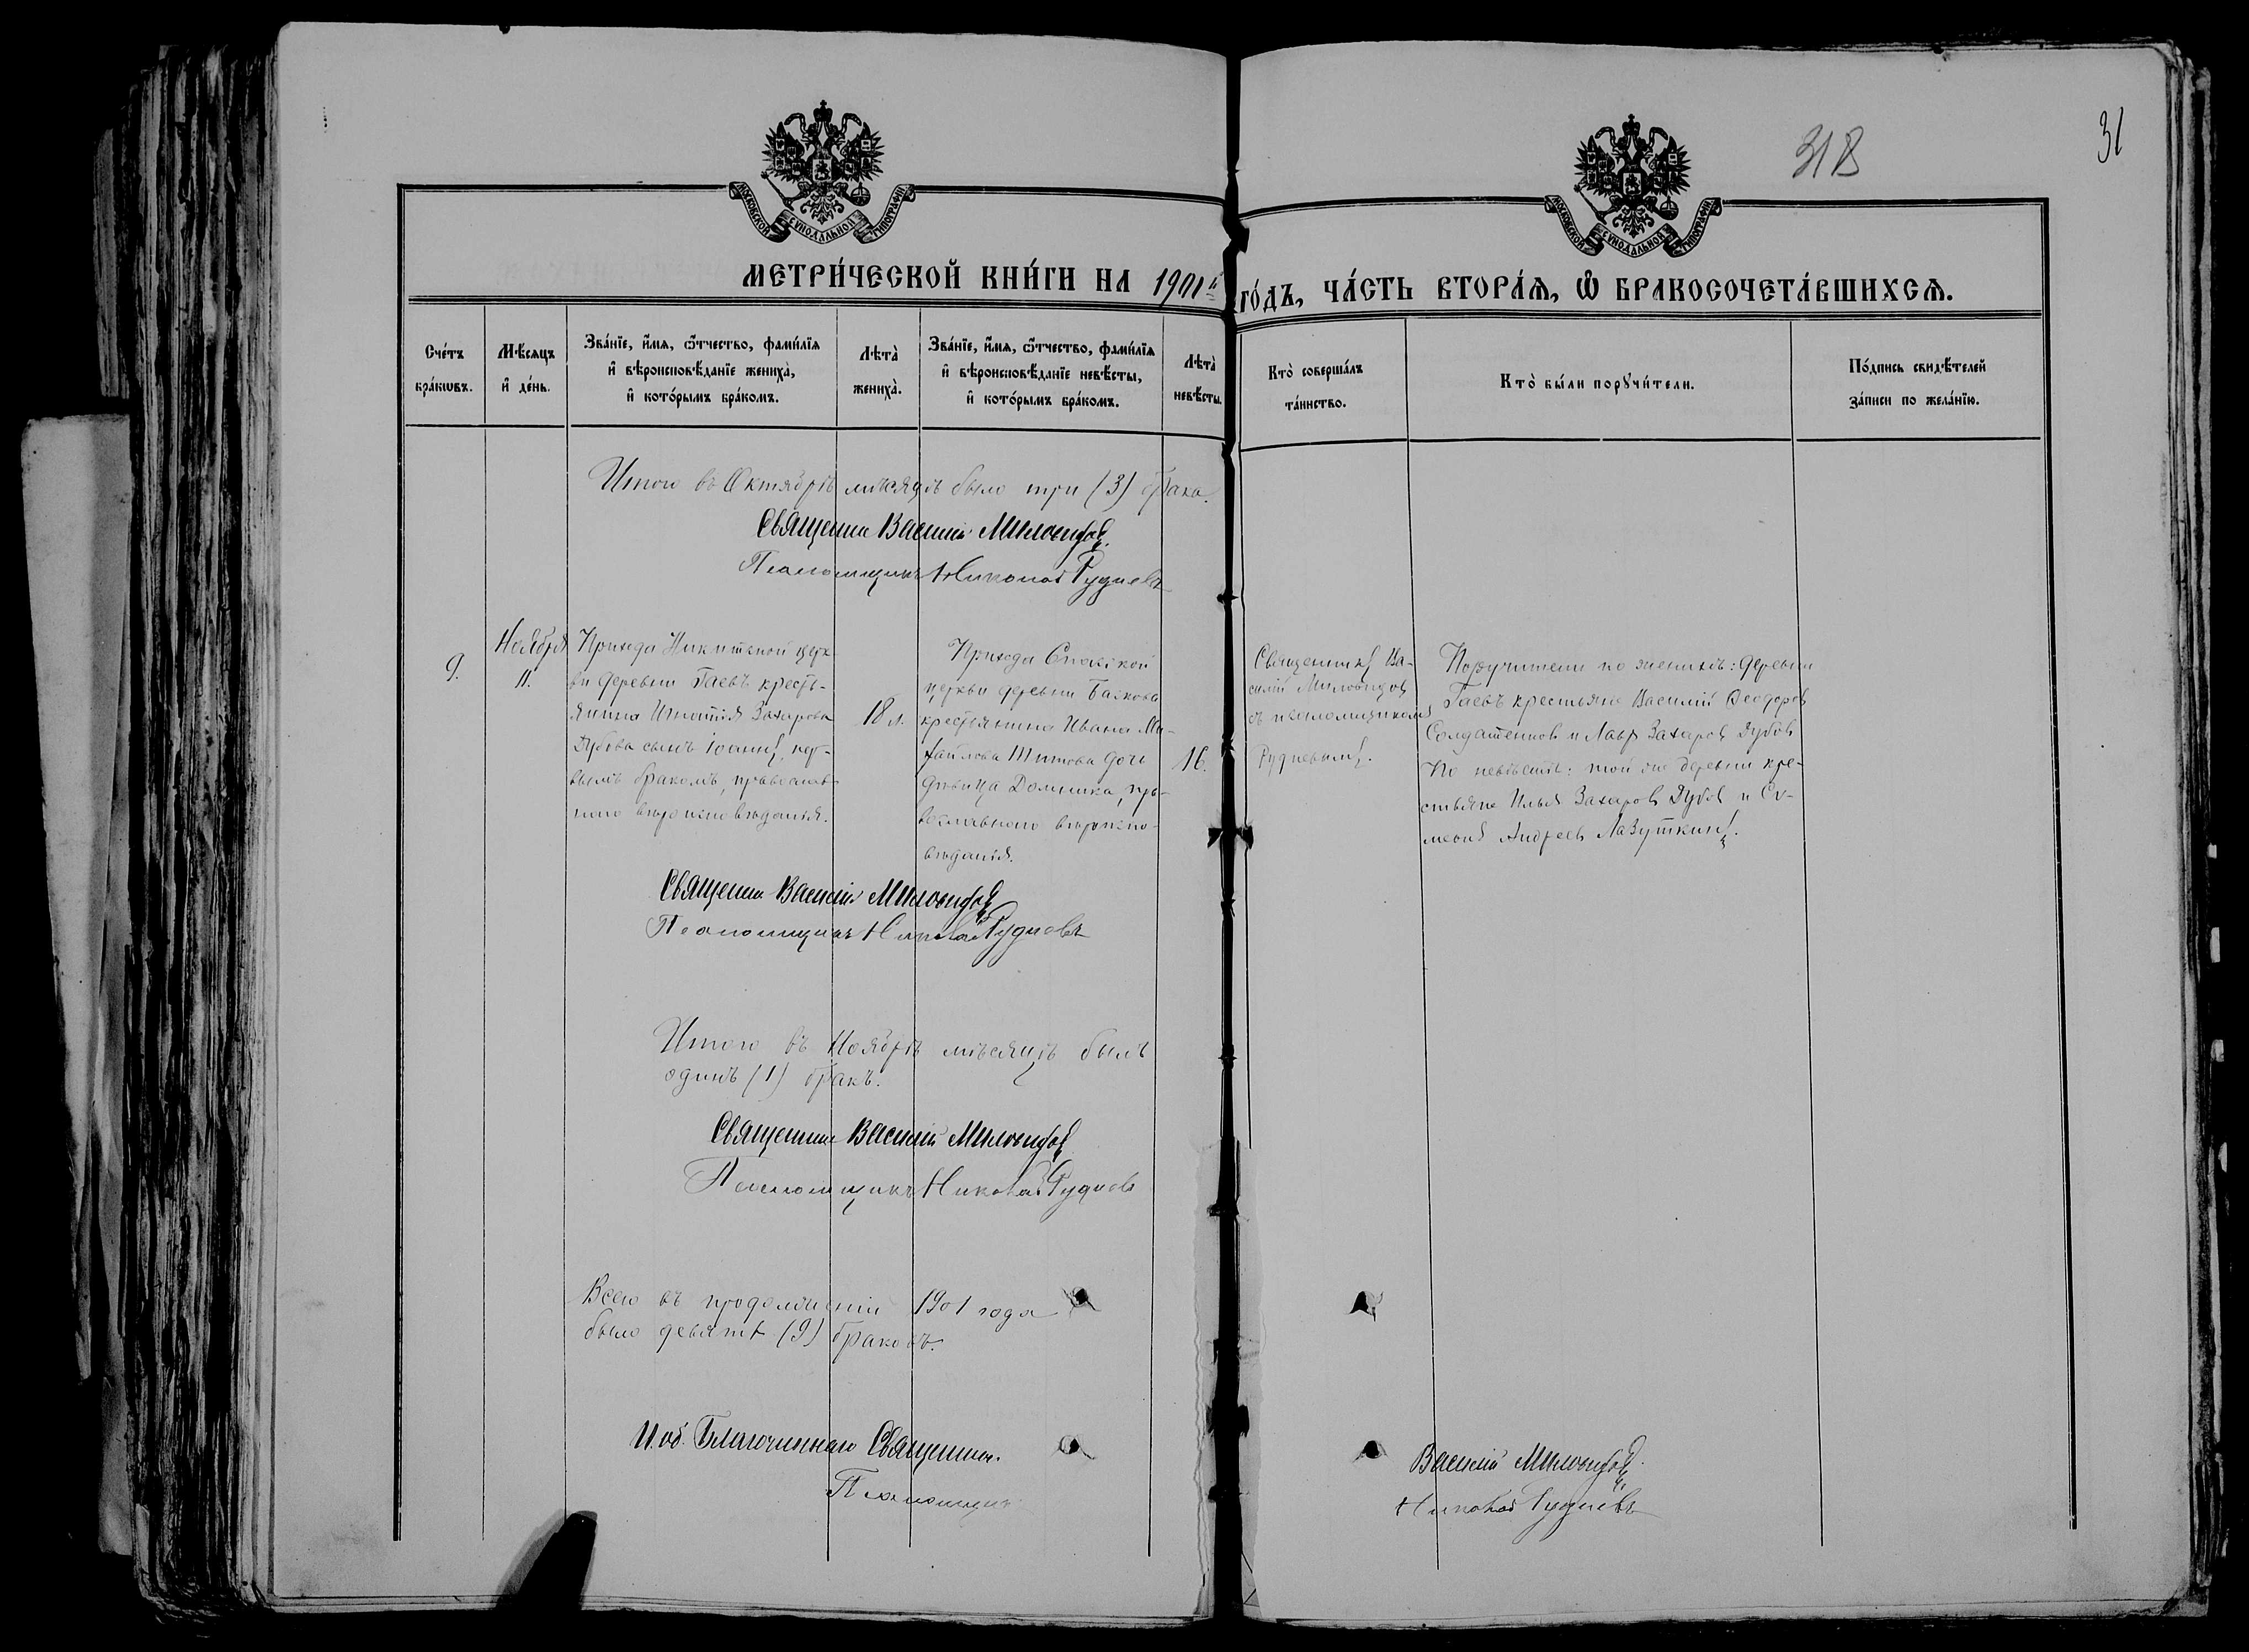 318
31
МОСКОВСКОЙ СѴНОДАЛЬНОЙ ТИПОГРАФІИ
МОСКОВСКОЙ СѴНОДАЛЬНОЙ ТИПОГРАФІИ
МЕТРИ́ЧЕСКОЙ КНИ́ГИ НА 1901й го́дъ, ЧА́СТЬ ВТОРА́Я, Ѡ БРАКОСОЧЕТА́ВШИХСЯ.
Сче́тъ
бра́кѡвъ.
Мѣ́сяцъ
и де́нь.
Зва́нїе, и́мя, ѻ́тчество, фами́лїя
и вѣроисповѣ́данїе жениха̀,
и кото́рымъ бра́комъ.
Лѣта̀
жениха̀.
Зва́нїе, и́мя, ѻ́тчество, фами́лїя
и вѣроисповѣ́данїе невѣ́сты,
и кото́рымъ бра́комъ.
Лѣта̀
невѣ́сты.
Кто̀ соверша́лъ
та́инство.
Кто̀ бы́ли порꙋчи́тели.
По́дпись свидѣ́телей
за́писи по жела́нїю.
Итого въ Октябрѣ мѣсяцѣ было три (3) брака.
Священник Василій Миловидовъ
Псаломщикъ Николай Рудневъ
9.
Ноября
11.
Прихода Никитской церк-
ви деревни Гаевъ кресть-
янина Игнатія Захарова
Дубова сынъ Іоаннъ, пер-
вымъ бракомъ, православ-
ного вѣроисповѣданія.
18 л.
Прихода Спасской
церкви деревни Баскова
крестьянина Ивана Ми-
хайлова Титова дочь
дѣвица Домника, пра-
вославного вѣроиспо-
вѣданія.
16.
Священникъ Ва-
силій Миловидов
съ псаломщикомъ
Рудневымъ.
Поручители по женихѣ: деревни
Гаевъ крестьяне Василій Ѳеодоров
Солдатенков и Лавр Захаров Дубов
По невѣстѣ: той же деревни кре-
стьяне Илья Захаров Дубов и Си-
меонъ Андреевъ Лазуткинъ.
Священник Василій Миловидовъ
Псаломщикъ Николай Рудневъ
Итого въ Ноябрѣ мѣсяцѣ былъ
одинъ (1) бракъ.
Священник Василій Миловидовъ
Псаломщикъ Николай Рудневъ
Всего въ продолженіи 1901 года
было девять (9) браковъ.
И. об. Благочиннаго Священник Василій Миловидовъ
Псаломщик Николай Рудневъ